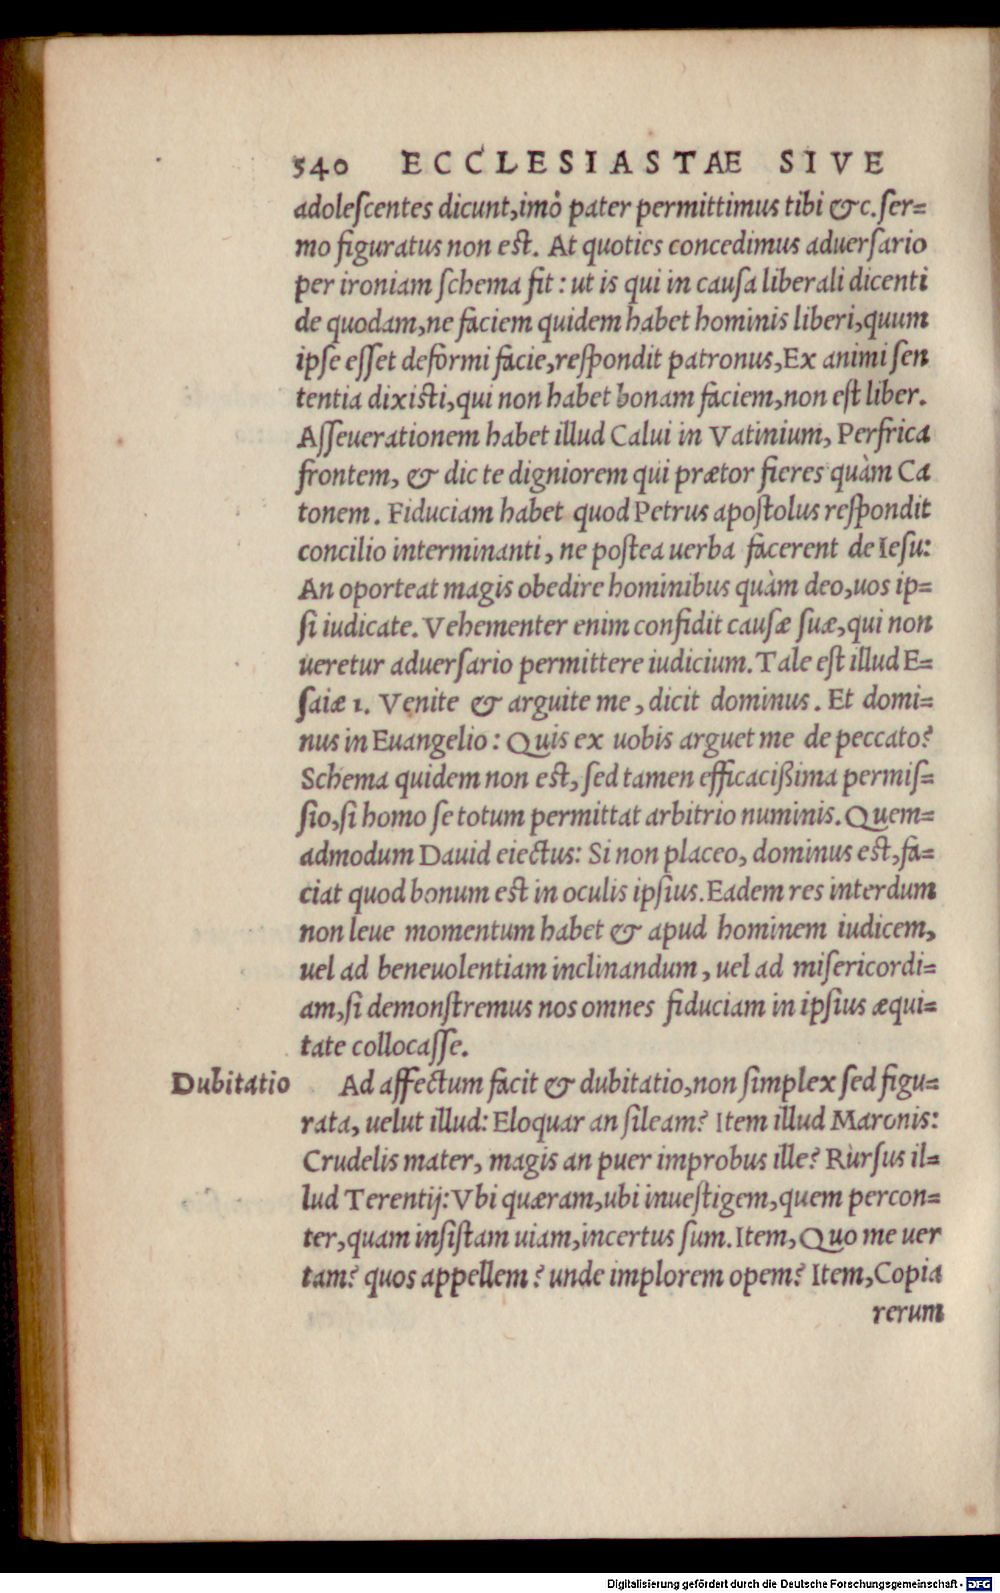 540 ECCLESIASTAE SIVE
adolescentes dicunt,imò pater permittimus tibi &c. ser=
mo figuratus non est. At quoties concedimus aduersario
per ironiam schema fit : ut is qui in causa liberali dicenti
de quodam,ne faciem quidem habet hominis liberi,quum
ipse esset deformi facie,respondit patronus,Ex animi sen
tentia dixisti,qui non habet bonam faciem,non est liber.
Asseuerationem habet illud Calui in Vatinium, Perfrica
frontem, & dic te digniorem qui prætor fieres quàm Ca
tonem. Fiduciam habet quod Petrus apostolus respondit
concilio interminanti, ne postea uerba facerent de Iesu:
An oporteat magis obedire hominibus quàm deo,uos ip=
si iudicate. Vehementer enim confidit causæ suæ,qui non
ueretur aduersario permittere iudicium. Tale est illud E=
saiæ 1. Venite & arguite me, dicit dominus. Et domi=
nus in Euangelio: Quis ex uobis arguet me de peccato?
Schema quidem non est, sed tamen efficacißima permis=
sio,si homo se totum permittat arbitrio numinis. Quem=
admodum Dauid eiectus: Si non placeo, dominus est,fa=
ciat quod bonum est in oculis ipsius. Eadem res interdum
non leue momentum habet & apud hominem iudicem,
uel ad beneuolentiam inclinandum, uel ad misericordi=
am,si demonstremus nos omnes fiduciam in ipsius æqui=
tate collocasse.
Dubitatio Ad affectum facit & dubitatio,non simplex sed figu=
rata, uelut illud: Eloquar an sileam? Item illud Maronis:
Crudelis mater, magis an puer improbus ille? Rursus il=
lud Terentij: Vbi quæram,ubi inuestigem,quem percon=
ter,quam insistam uiam,incertus sum. Item, Quo me uer
tam? quos appellem? unde implorem opem? Item,Copia
rerum
Digitalisierung gefördert durch die Deutsche Forschungsgemeinschaft - DFG